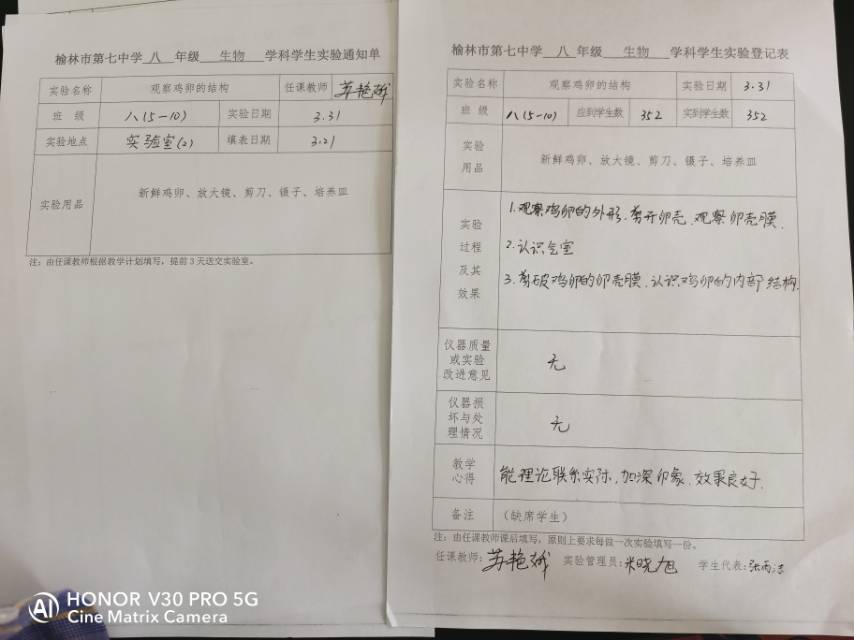 榆林市第七中学 八 年级 生物 学科学生实验通知单
实验名称 观察鸡卵的结构 任课教师 苏艳娥
班 级 八(5-10) 实验日期 3.31
实验地点 实验室(2) 填表日期 3.21
实验用品 新鲜鸡卵、放大镜、剪刀、镊子、培养皿
注：由任课教师根据教学计划填写，提前3天送交实验室。
榆林市第七中学 八 年级 生物 学科学生实验登记表
实验名称 观察鸡卵的结构 实验日期 3.31
班 级 八(5-10) 应到学生数 352 实到学生数 352
实验
用品
新鲜鸡卵、放大镜、剪刀、镊子、培养皿
实验
过程
及其
效果
1.观察鸡卵的外形.剪开卵壳.观察卵壳膜.
2.认识气室
3.剪破鸡卵的卵壳膜.认识鸡卵的内部结构.
仪器质量
或实验
改进意见
无
仪器损
坏与处
理情况
无
教学
心得
能理论联系实际,加深印象.效果良好.
备注 （缺席学生）
注：由任课教师课后填写，原则上要求每做一次实验填写一份。
任课教师：苏艳娥 实验管理员：米晓旭 学生代表：张雨洁
HONOR V30 PRO 5G
Cine Matrix Camera